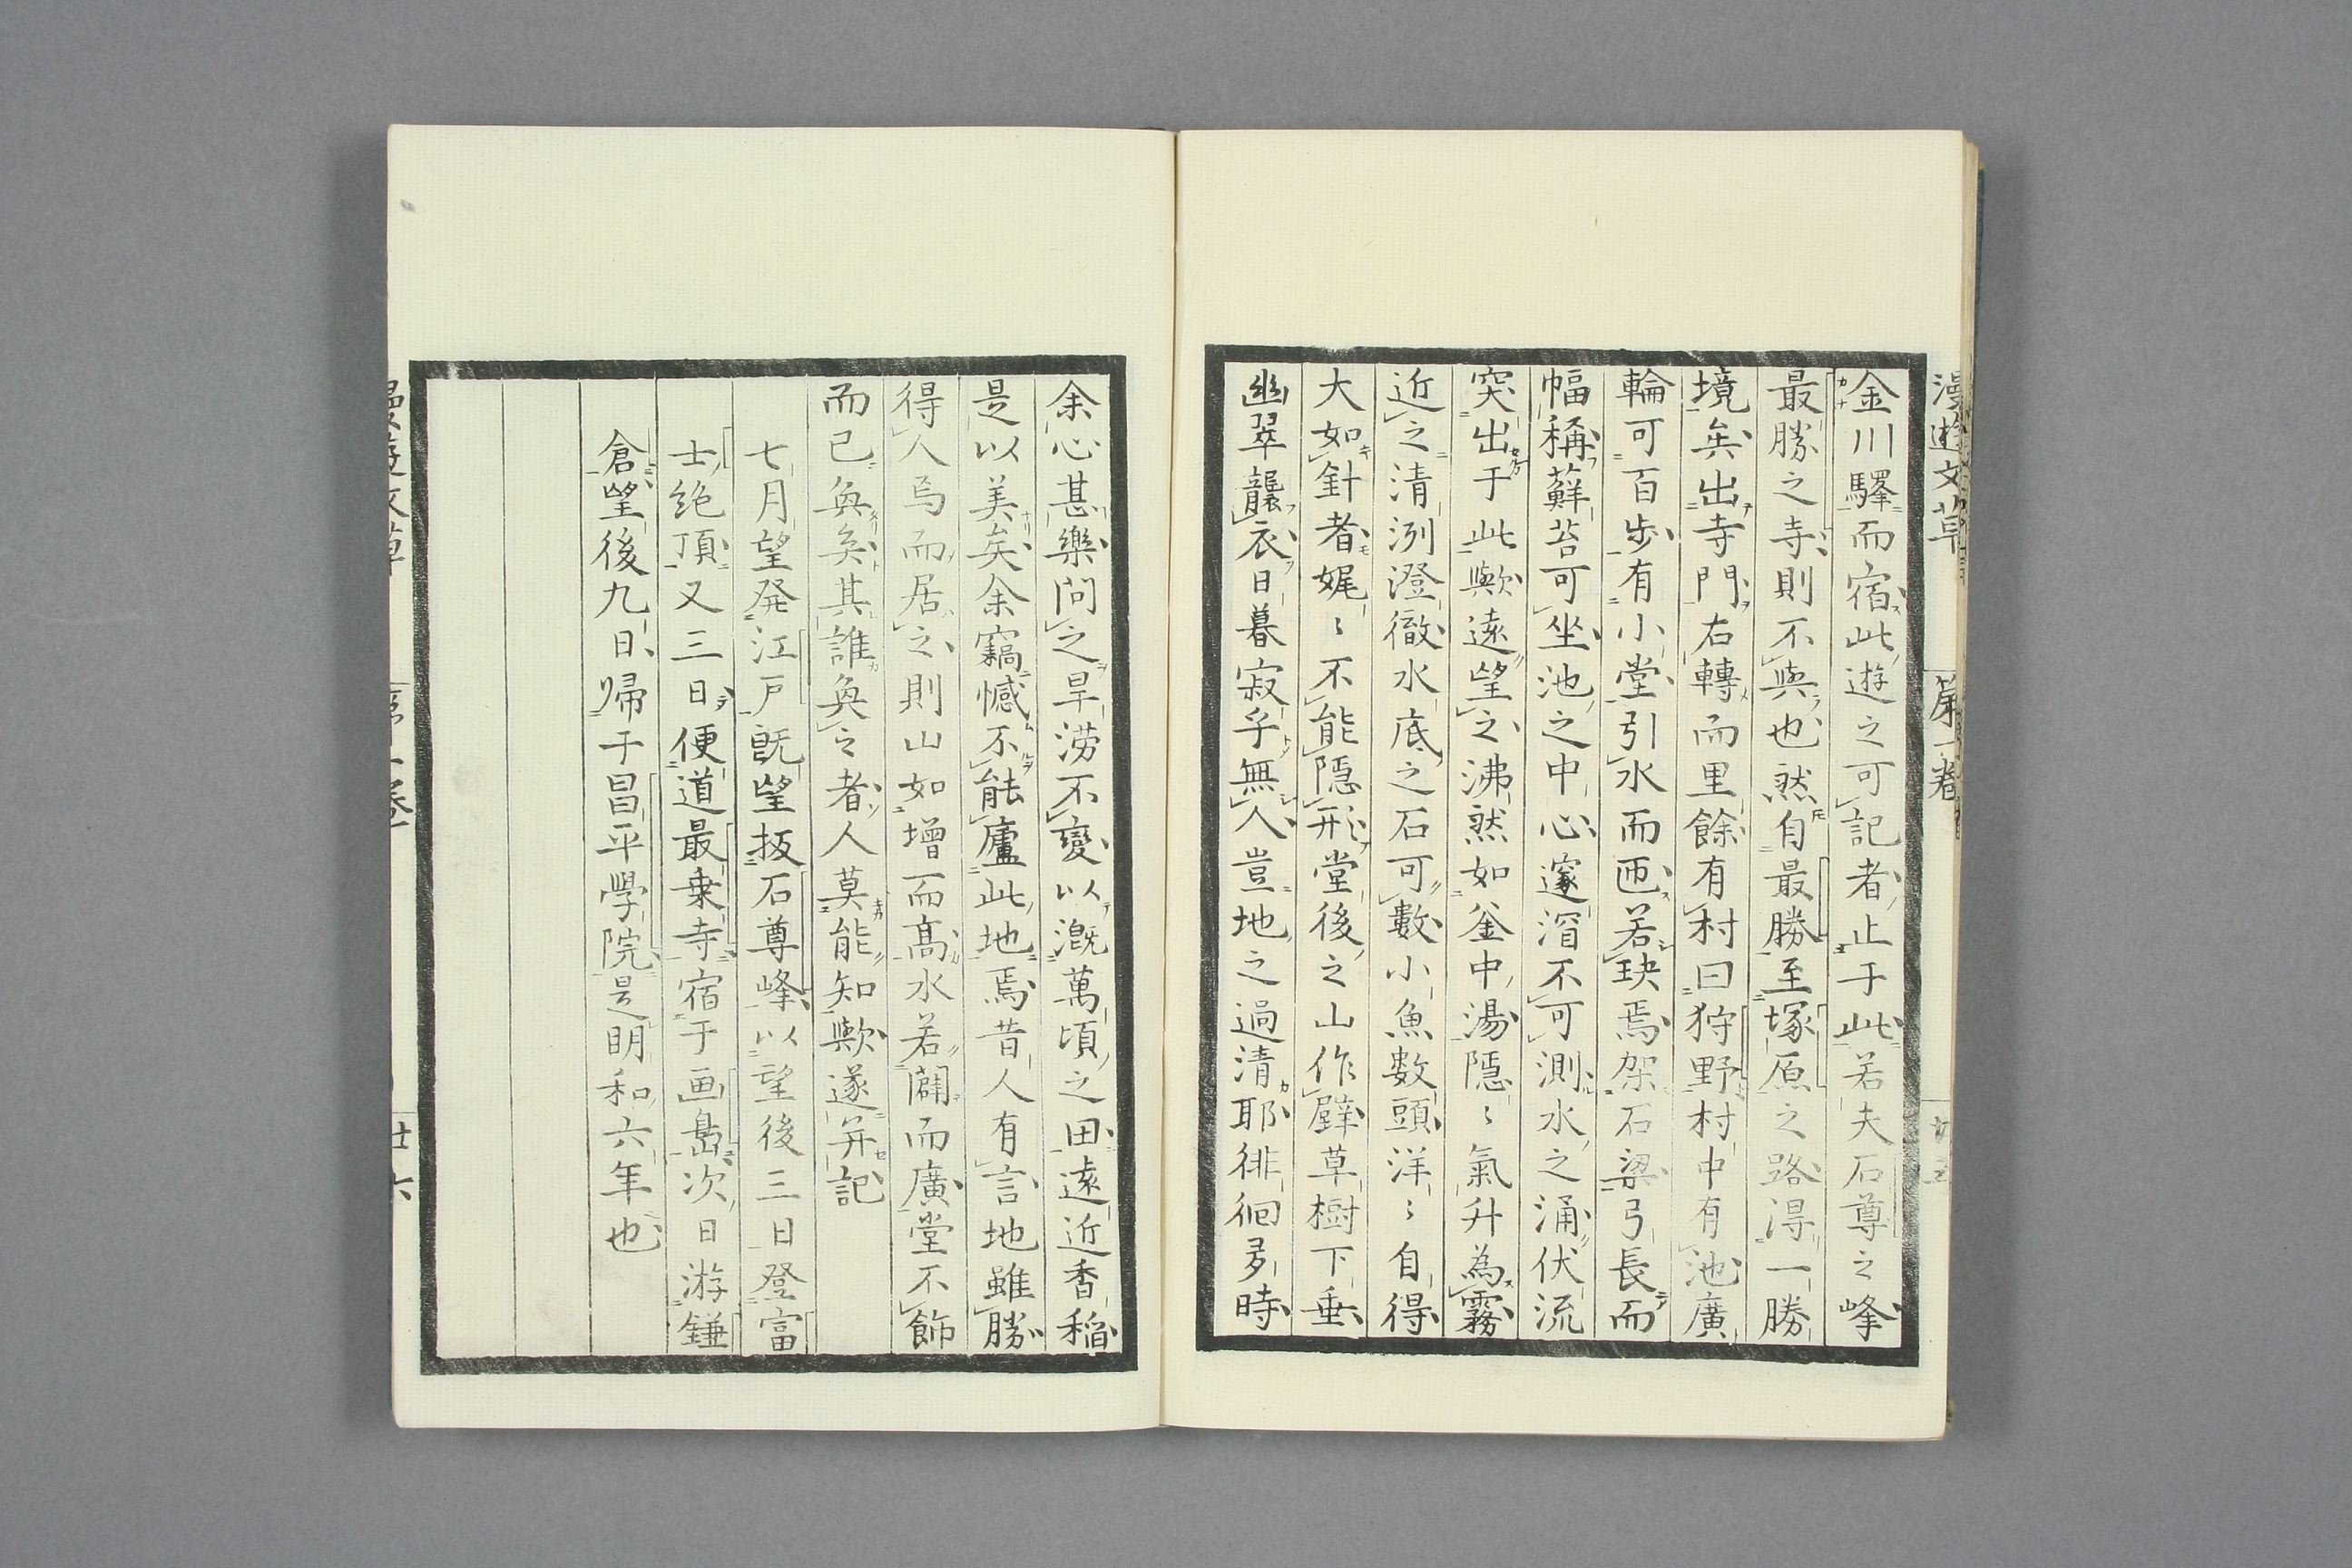 漫遊文草
第一卷
金川驛而宿此遊之可記者止于此若夫石尊之峰
最勝之寺則不與也然自最勝至塚原之路得一勝
境矣出寺門右轉而里餘有村曰狩野村中有池廣
輪可百步有小堂引水而匝若玦焉架石梁弓長而
幅稱蘚苔可坐池之中心邃滔不可測水之涌伏流
突出于此歟遠望之沸然如釜中湯隱〻氣升為霧
近之清洌澄徹水底之石可數小魚数頭洋〻自得
大如針者娓〻不能隱形堂後之山作壁草樹下垂
幽翠襲衣日暮寂乎無人豈地之過清耶徘徊多時
余心甚樂問之旱澇不變以漑萬頃之田遠近香稲
是以美矣余竊憾不能廬此地焉昔人有言地雖勝
得人焉而居之則山如增而高水若闢而廣堂不飾
而已奐矣其誰奐之者人莫能知歟遂并記
七月望発江戸旣望扳石尊峰以望後三日登富
士絶頂又三日便道最乗寺宿于画島次日游鎌
倉望後九日帰于昌平學院是明和六年也
漫遊文草
第一卷
廿六